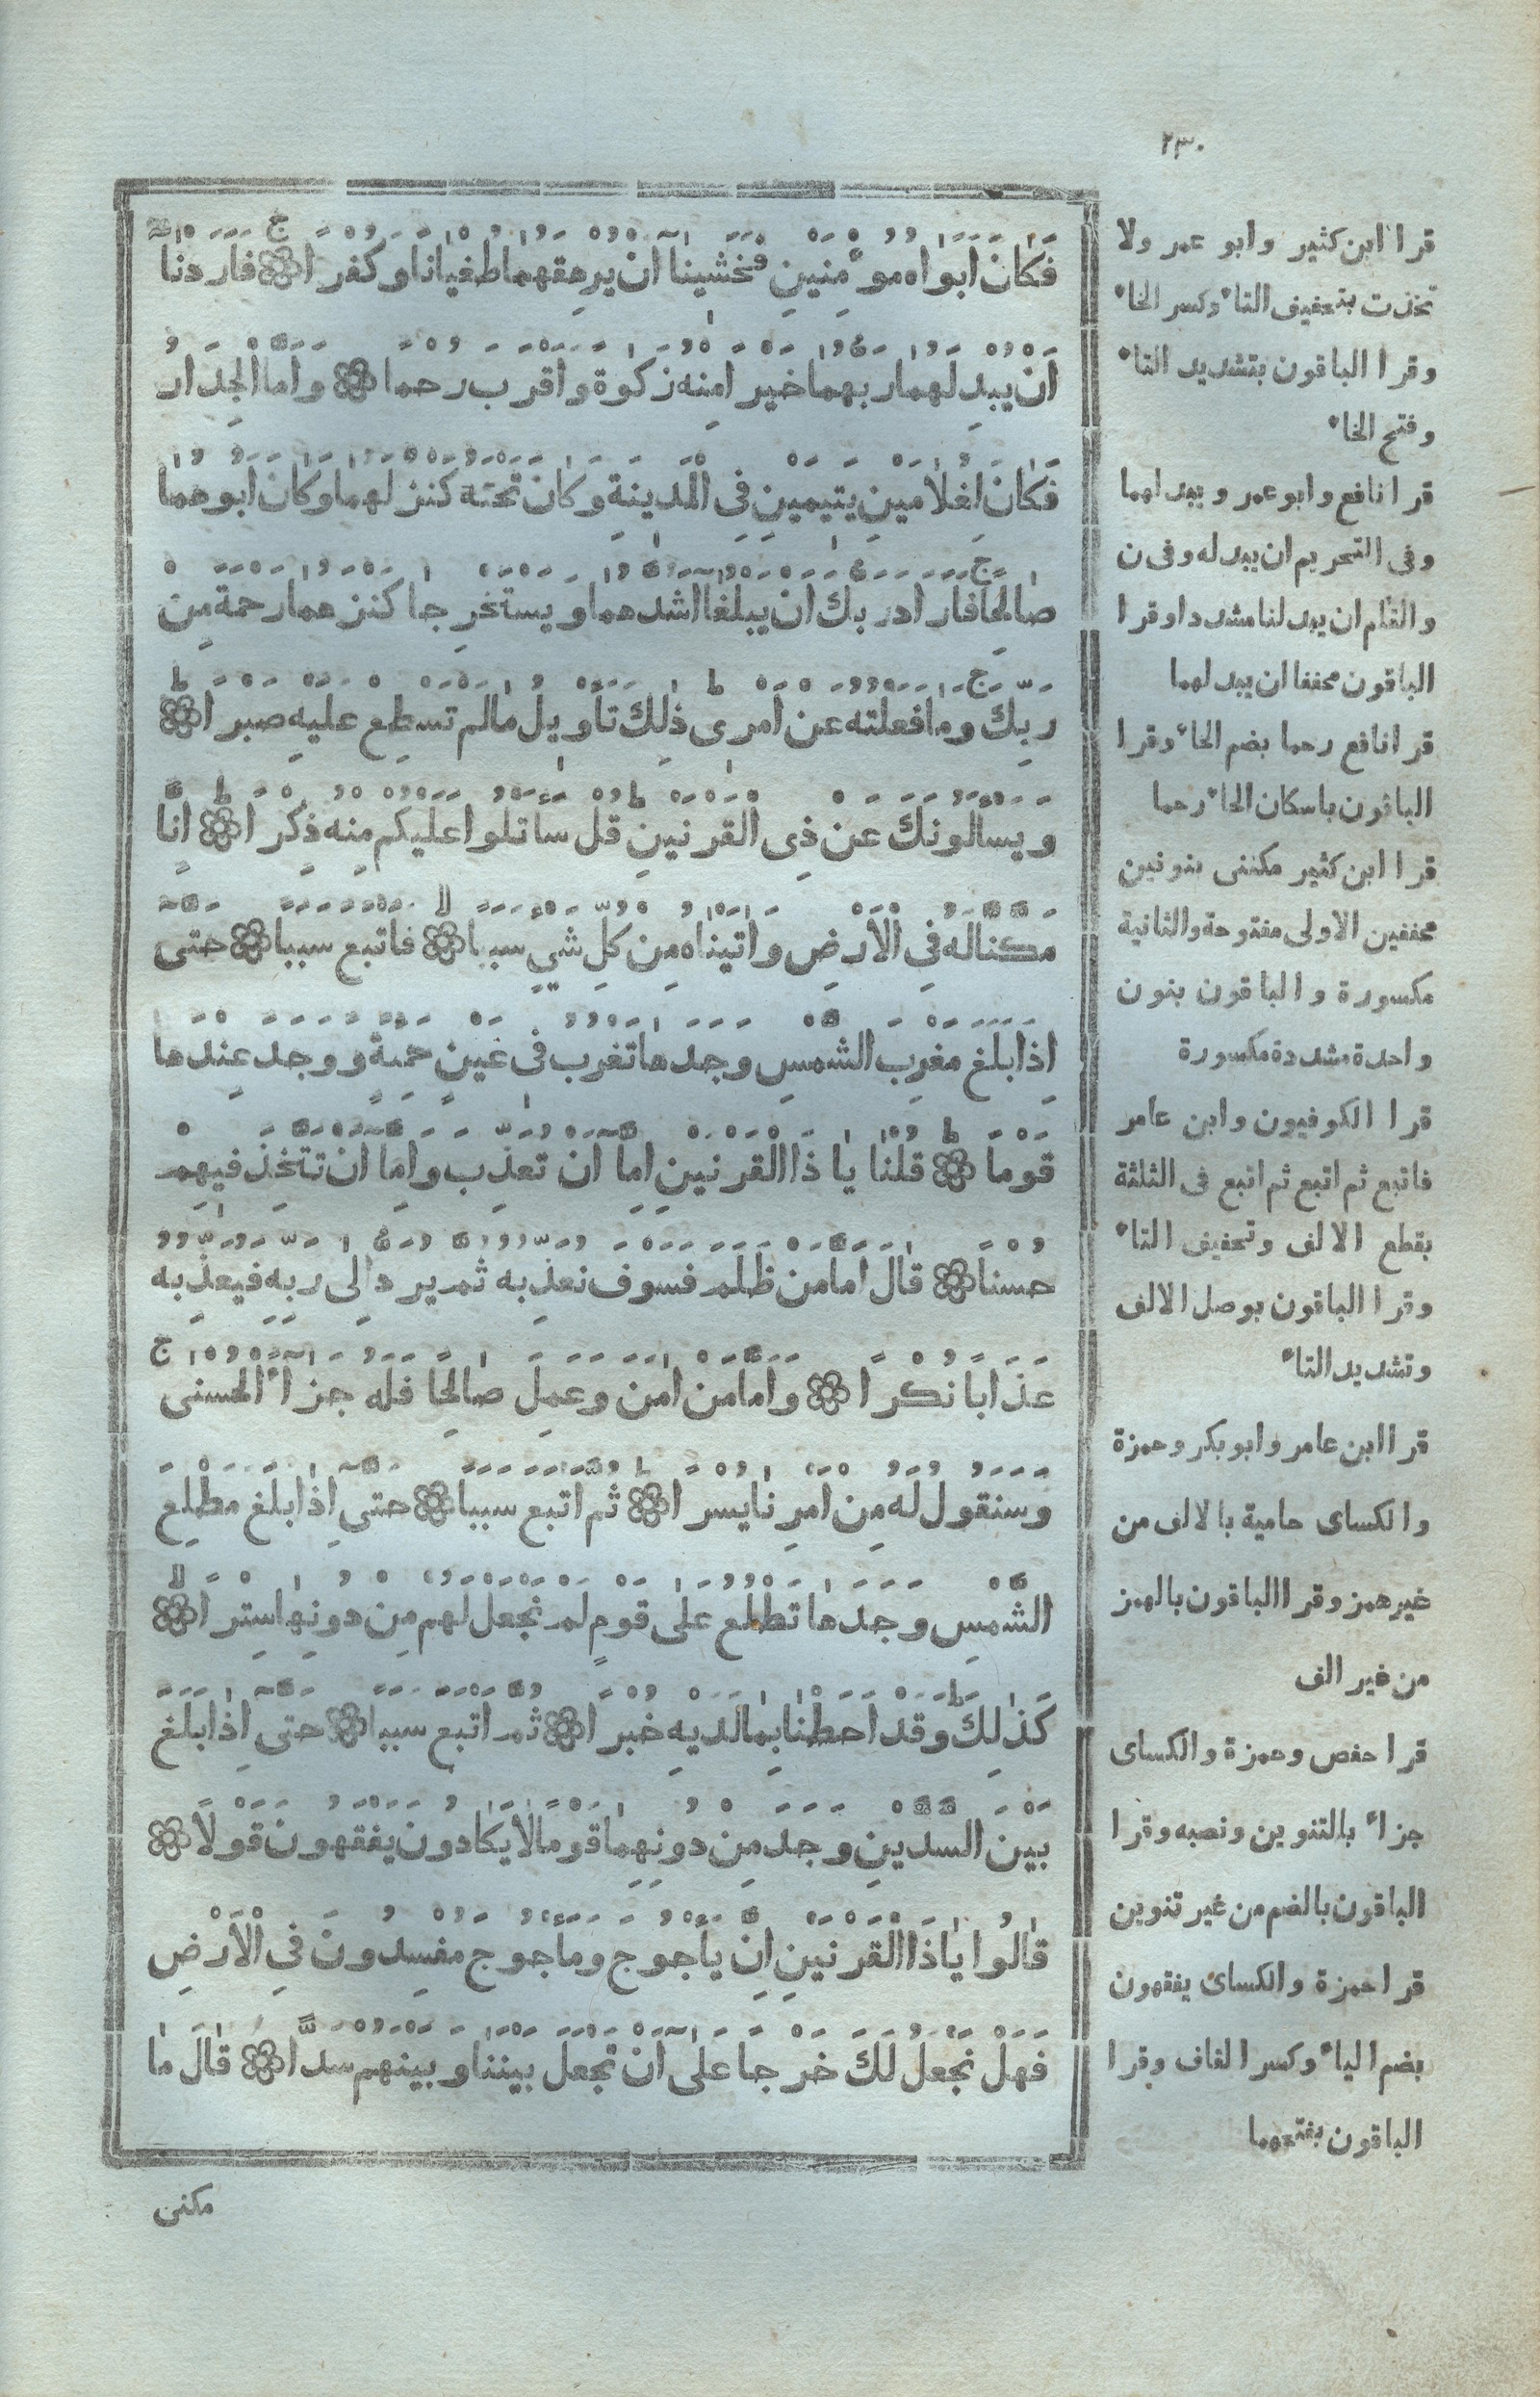 ٢٣٠
فَكَانَ اَبَوَاهُ مُوْءمِنَيْنِ فَخَشِينَآ اَنْ يُرْهِقَهُمَا طُغْيَانًا وَكُفْرًا ۞ فَاَرَدْنَآ
اَنْ يُبْدِلَهُمَا رَبُّهُمَا خَيْرًا مِنْهُ زَكٰوةً وَاَقْرَبَ رُحْمًا ۞ وَاَمَّا الْجِدَارُ
فَكَانَ لِغُلَامَيْنِ يَتِيمَيْنِ فِى الْمَدِينَةِ وَكَانَ تَحْتَهُ كَنْزٌ لَهُمَا وَكَانَ اَبُوهُمَا
صَالِحًا فَاَرَادَ رَبُّكَ اَنْ يَبْلُغَآ اَشُدَّهُمَا وَيَسْتَخْرِجَا كَنْزَهُمَا رَحْمَةً مِنْ
رَبِّكَ وَمَا فَعَلْتُهُ عَنْ اَمْرِى ذٰلِكَ تَاْوِيلُ مَا لَمْ تَسْطِعْ عَلَيْهِ صَبْرًا ۞
وَيَسْاَلُونَكَ عَنْ ذِى الْقَرْنَيْنِ قُلْ سَاَتْلُوا عَلَيْكُمْ مِنْهُ ذِكْرًا ۞ اِنَّا
مَكَّنَّا لَهُ فِى الْاَرْضِ وَاٰتَيْنَاهُ مِنْ كُلِّ شَيْءٍ سَبَبًا ۞ فَاَتْبَعَ سَبَبًا ۞ حَتَّى
اِذَا بَلَغَ مَغْرِبَ الشَّمْسِ وَجَدَهَا تَغْرُبُ فِى عَيْنٍ حَمِئَةٍ وَوَجَدَ عِنْدَهَا
قَوْمًا ۞ قُلْنَا يَا ذَا الْقَرْنَيْنِ اِمَّآ اَنْ تُعَذِّبَ وَاِمَّآ اَنْ تَتَّخِذَ فِيهِمْ
حُسْنًا ۞ قَالَ اَمَّا مَنْ ظَلَمَ فَسَوْفَ نُعَذِّبُهُ ثُمَّ يُرَدُّ اِلَى رَبِّهِ فَيُعَذِّبُهُ
عَذَابًا نُكْرًا ۞ وَاَمَّا مَنْ اٰمَنَ وَعَمِلَ صَالِحًا فَلَهُ جَزَآءً الْحُسْنَى
وَسَنَقُولُ لَهُ مِنْ اَمْرِنَا يُسْرًا ۞ ثُمَّ اَتْبَعَ سَبَبًا ۞ حَتَّىٓ اِذَا بَلَغَ مَطْلِعَ
الشَّمْسِ وَجَدَهَا تَطْلُعُ عَلَى قَوْمٍ لَمْ نَجْعَلْ لَهُمْ مِنْ دُونِهَا سِتْرًا ۞
كَذٰلِكَ وَقَدْ اَحَطْنَا بِمَا لَدَيْهِ خُبْرًا ۞ ثُمَّ اَتْبَعَ سَبَبًا ۞ حَتَّىٓ اِذَا بَلَغَ
بَيْنَ السَّدَّيْنِ وَجَدَ مِنْ دُونِهِمَا قَوْمًا لَا يَكَادُونَ يَفْقَهُونَ قَوْلًا ۞
قَالُوا يَا ذَا الْقَرْنَيْنِ اِنَّ يَاْجُوجَ وَمَاْجُوجَ مُفْسِدُونَ فِى الْاَرْضِ
فَهَلْ نَجْعَلُ لَكَ خَرْجًا عَلَىٓ اَنْ تَجْعَلَ بَيْنَنَا وَبَيْنَهُمْ سَدًّا ۞ قَالَ مَا
مكنى
قرا ابن كثير وابو عمر ولا
تخذت بتخفيف التاء وكسر الخاء
وقرا الباقون بتشديد التاء
وفتح الخاء
قرا نافع وابو عمر و يبدلهما
وفى التحريم ان يبدله وفى ن
والقلم ان يبدلنا مشددا وقرا
الباقون مخففا ان يبدلهما
قرا نافع رحما بضم الحاء وقرا
الباقون باسكان الحاء رحما
قرا ابن كثير مكننى بنونين
مخففين الاولى مفتوحة والثانية
مكسورة والباقون بنون
واحدة مشددة مكسورة
قرا الكوفيون وابن عامر
فاتبع ثم اتبع ثم اتبع فى الثلثة
بقطع الالف وتخفيف التاء
وقرا الباقون بوصل الالف
وتشديد التاء
قرا ابن عامر وابو بكر وحمزة
والكساى حامية بالالف من
غير همز وقرا الباقون بالهمز
من غير الف
قرا حفص وحمزة والكساى
جزاء بالتنوين ونصبه وقرا
الباقون بالضم من غير تنوين
قرا حمزة والكساى يفقهون
بضم الياء وكسر القاف وقرا
الباقون بفتحهما